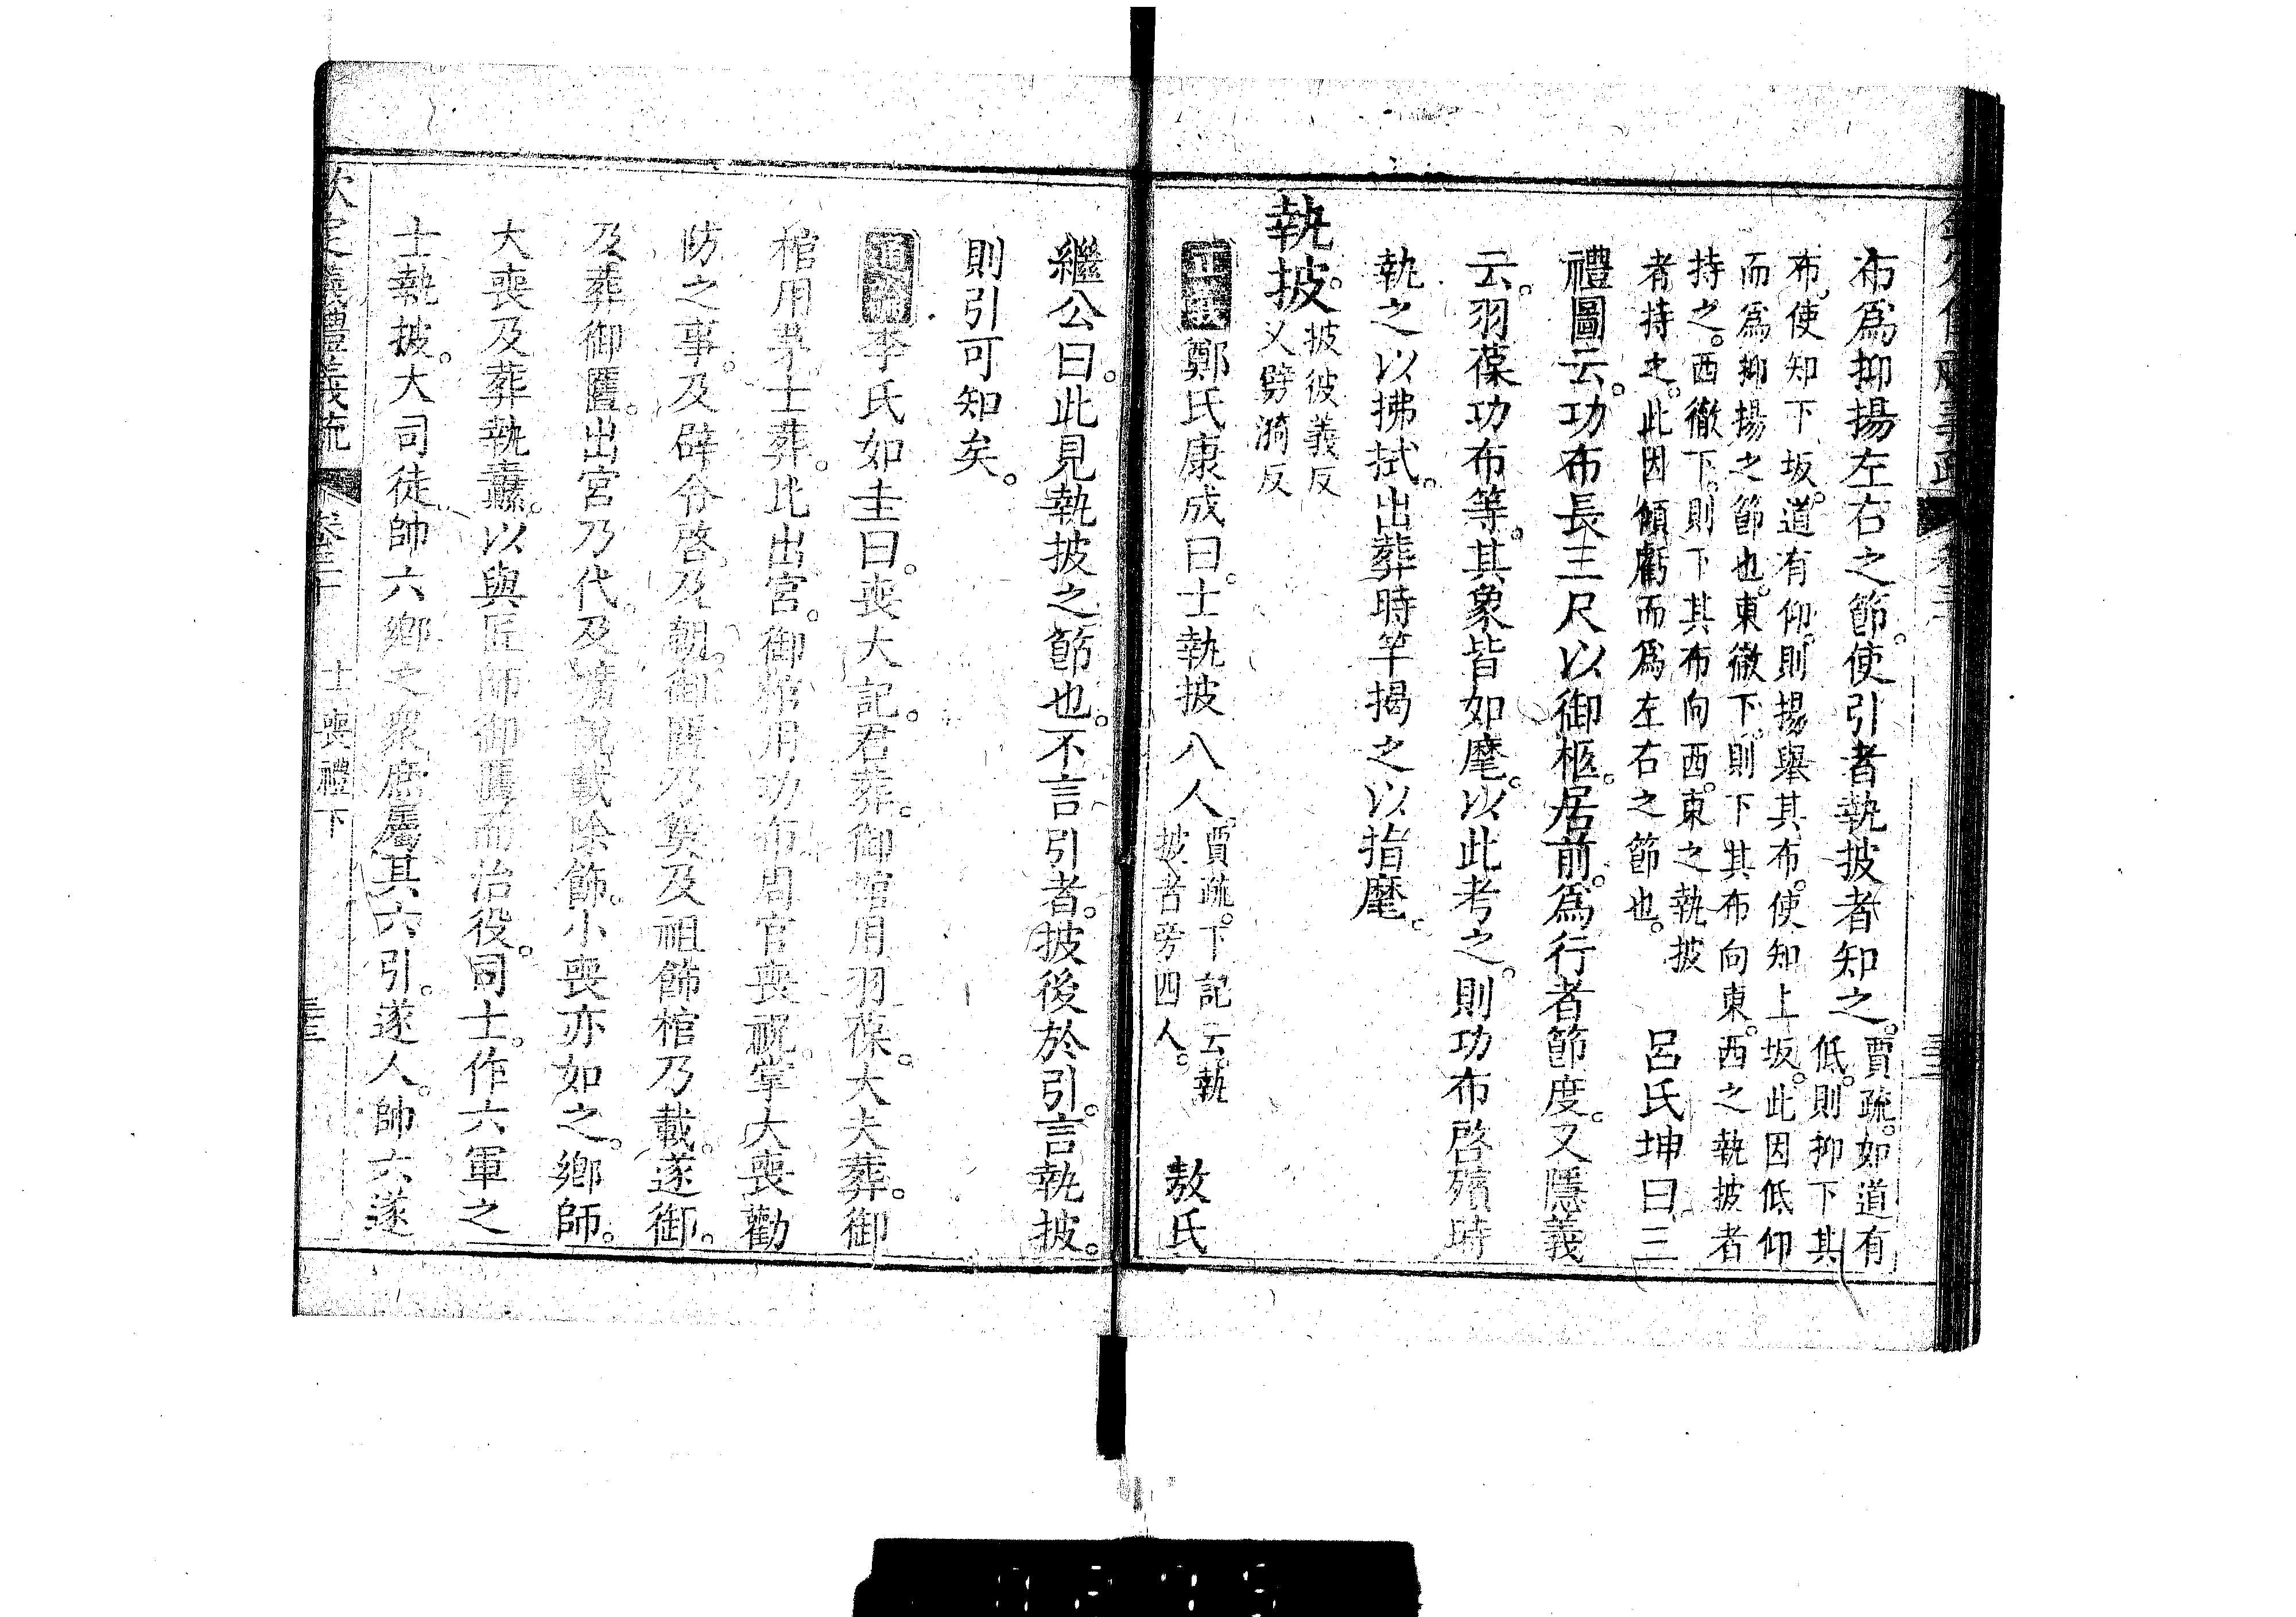 布爲抑揚左右之節。使引者執披者知之。賈疏。如道有
低。則抑下其
布。使知下坂。道有仰。則揚舉其布。使知上坂。此因低仰
而爲抑揚之節也。東徹下。則下其布向東。西之執披者
持之。西徹下。則下其布向西。東之執披
者持之。此因傾虧而爲左右之節也。
呂氏坤曰三
禮圖云。功布長三尺以御柩。居前。爲行者節度。又隱義
云。羽葆功布等。其象皆如麾。以此考之。則功布啓殯時
執之以拂拭。出葬時竿揭之以指麾。
執披。披彼義反
又劈漪反
鄭氏康成曰。士執披八人。賈疏。下記云。執
披者旁四人。
敖氏
繼公曰。此見執披之節也。不言引者。披後於引。言執披。
則引可知矣。
李氏如圭曰。喪大記。君葬。御棺用羽葆。大夫葬。御
棺用茅。士葬。比出宮。御棺用功布。周官喪祝。掌大喪勸
防之事。及辟令啓。及朝。御匶乃奠。及祖飾棺乃載。遂御。
及葬御匶。出宮乃代。及壙說載除飾。小喪亦如之。鄉師。
大喪及葬執纛。以與匠師御匶而治役。司士。作六軍之
士執披。大司徒帥六鄉之衆庶屬其六引。遂人。帥六遂
欽定儀禮義疏 士喪禮下